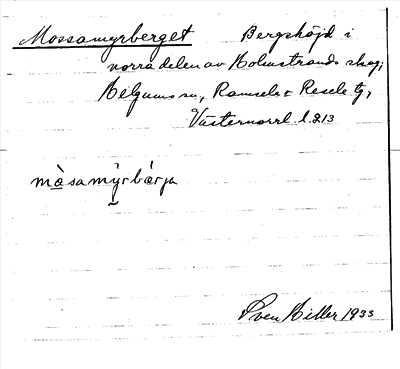 Mossamyrberget Bergshöjd i
norra delen av Holmstrands skog,
Helgums sn, Ramsele o Resele tg,
Västernorrl. l. 213
màsamy̆rbærja
Sven Hiller 1933